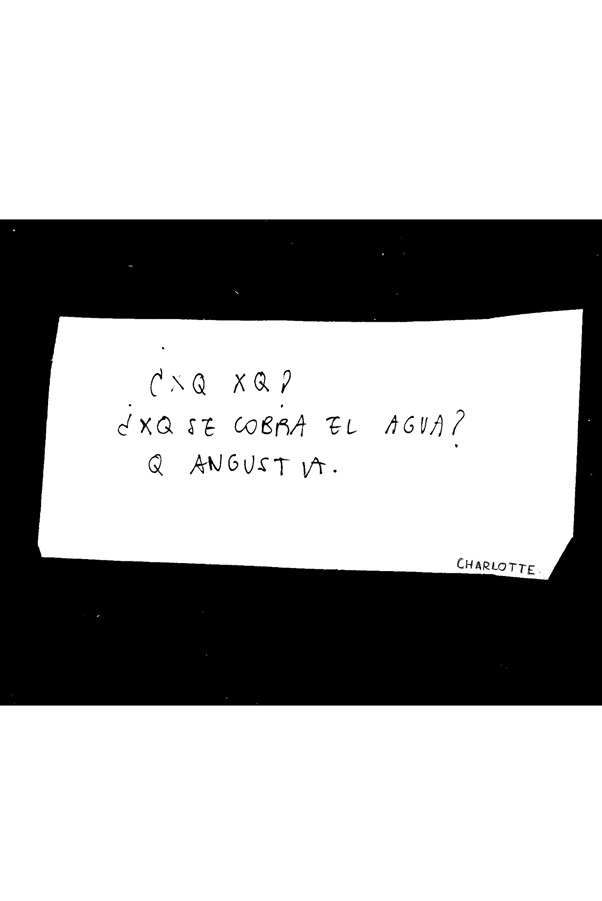 ¿XQ XQ?
¿XQ SE COBRA EL AGUA?
Q ANGUSTIA.
CHARLOTTE